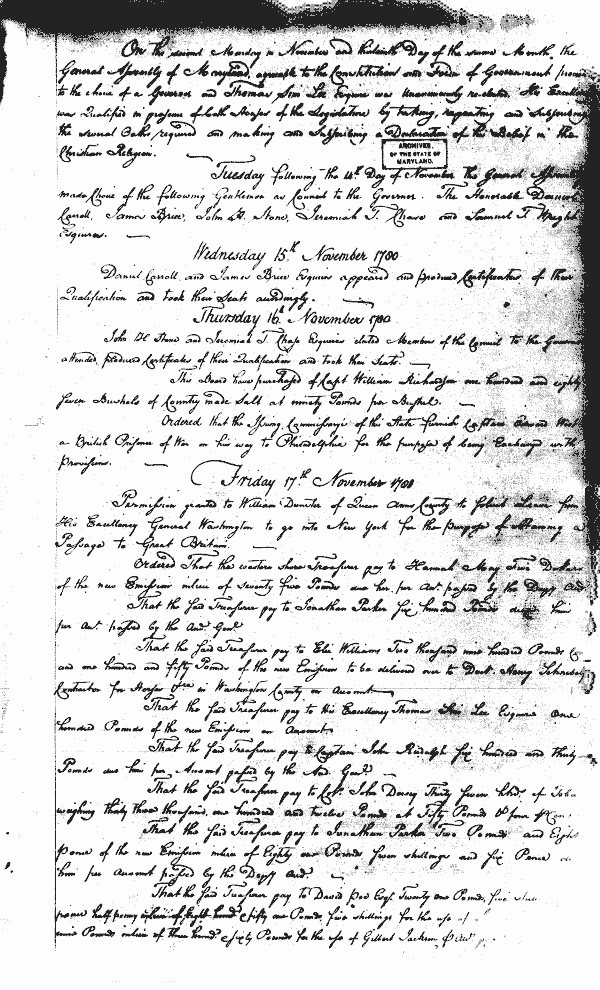 On the second Monday in November and thirteenth Day of the same Month, the
General Assembly of Maryland, agreeable to the Constitution and Form of Government proceed
to the choice of a Governor and Thomas Sim Lee Esquire was Unanimously reelected. His Excellen
was Qualified in presence of both Houses of the Legislature by taking, repeating and Subscribing
the several Oaths required and making and Subscribing a Declaration of his Belief in the
Christian Religion.
ARCHIVES
OF THE STATE OF
MARYLAND.
Tuesday following the 14th Day of November the General Assembly
made Choice of the following Gentlemen as Council to the Governor. The Honorable Daniel
Carroll, James Brice, John H. Stone, Jeremiah T. Chase and Samuel T. Wright
Esquires.
Wednesday 15th November 1780
Daniel Carroll, and James Brice Esquires appeared and produced Certificates of their
Qualification and took their Seats accordingly.
Thursday 16th November 1780
John H Stone and Jeremiah T. Chase Esquires elected Members of the Council to the Governor
attended, produced Certificates of their Qualification and took their Seats.
This Board have purchased of Capt William Richardson one hundred and eighty
seven Bushels of Country made Salt at ninety Pounds per Bushel.
Ordered that the Issuing Commissary of this State furnish Captain Edward West
a British Prisoner of War on his way to Philadelphia for the purpose of being Exchang with
Provisions.
Friday 17th November 1780
Permission granted to William Dunster of Queen Anns County to Leave from
His Excellency General Washington to go into New York for the purpose of obtaining a
Passage to Great Britain.
Ordered That the western shore Treasurer pay to Hannah May Two Dollars
of the new Emission in lieu of seventy five Pounds due her per Acct. passed by the Depy Aud
That the said Treasurer pay to Jonathan Parker six hundred Pounds due him
per Acct. passed by the Aud. Genl.
That the said Treasurer pay to Eli Williams Two thousand nine hundred Pounds
and one hundred and fifty Pounds of the new Emission to be delivered over to Doct. Henry Schnebely
Contractor for Horses &ca in Washington County on Account
That the said Treasurer pay to His Excellency Thomas Sim Lee Esquire One
hundred Pounds of the new Emission on Account
That the said Treasurer pay to Captain John Rudolph six hundred and thirty
Pounds due him per Account passed by the Aud. Genl.
That the said Treasurer pay to Col. John Dorsey Thirty seven hhds. of Tobo
weighing thirty three thousand, one hundred and twelve Pounds at Fifty Pounds
That the said Treasurer pay to Jonathan Parker Two Pounds and Eight
Pence of the new Emission in lieu of Eighty one Pounds seven shillings and six Pence
him per Account passed by the Depy Aud.
That the said Treasurer pay to David Poe Esqr. Twenty one Pounds, five
pence half penny in lieu of Eight hund & fifty one Pounds, five shillings for the use of
nine Pounds in lieu of three hund & sixty Pounds for the use of Gilbert Jackson